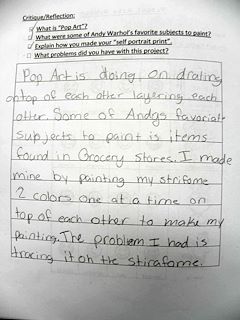 Critique/Reflection:
What is "Pop Art"?
What were some of Andy Warhol's favorite subjects to paint?
Explain how you made your "self portrait print".
What problems did you have with this project?
Pop Art is doing on drating
ontop of each other layering each
other. Some of Andys favoriat
subjects to paint is items
found in Grocery stores. I made
mine by painting my strifome
2 colors one at a time on
top of each other to make my
painting. The problem I had is
tracing it oh the stirafome.